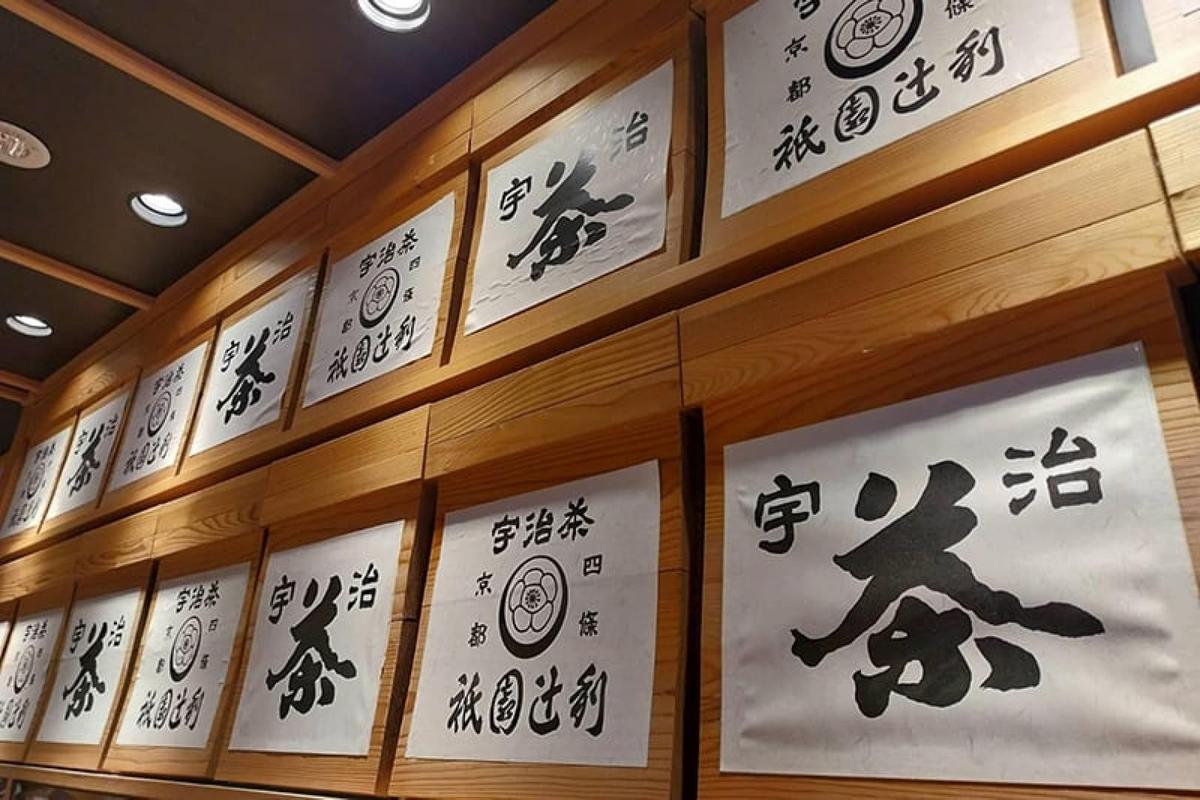 宇治茶
祇園辻利
宇治茶
宇治茶
京都
四條
祇園辻利
宇治茶
宇治茶
京都
四條
祇園辻利
宇治茶
京都
條
祇園辻利
宇治茶
祇園辻利
宇治茶
宇治茶
京都
四條
祇園辻利
宇治茶
宇治茶
京都
四條
祇園辻利
宇治茶